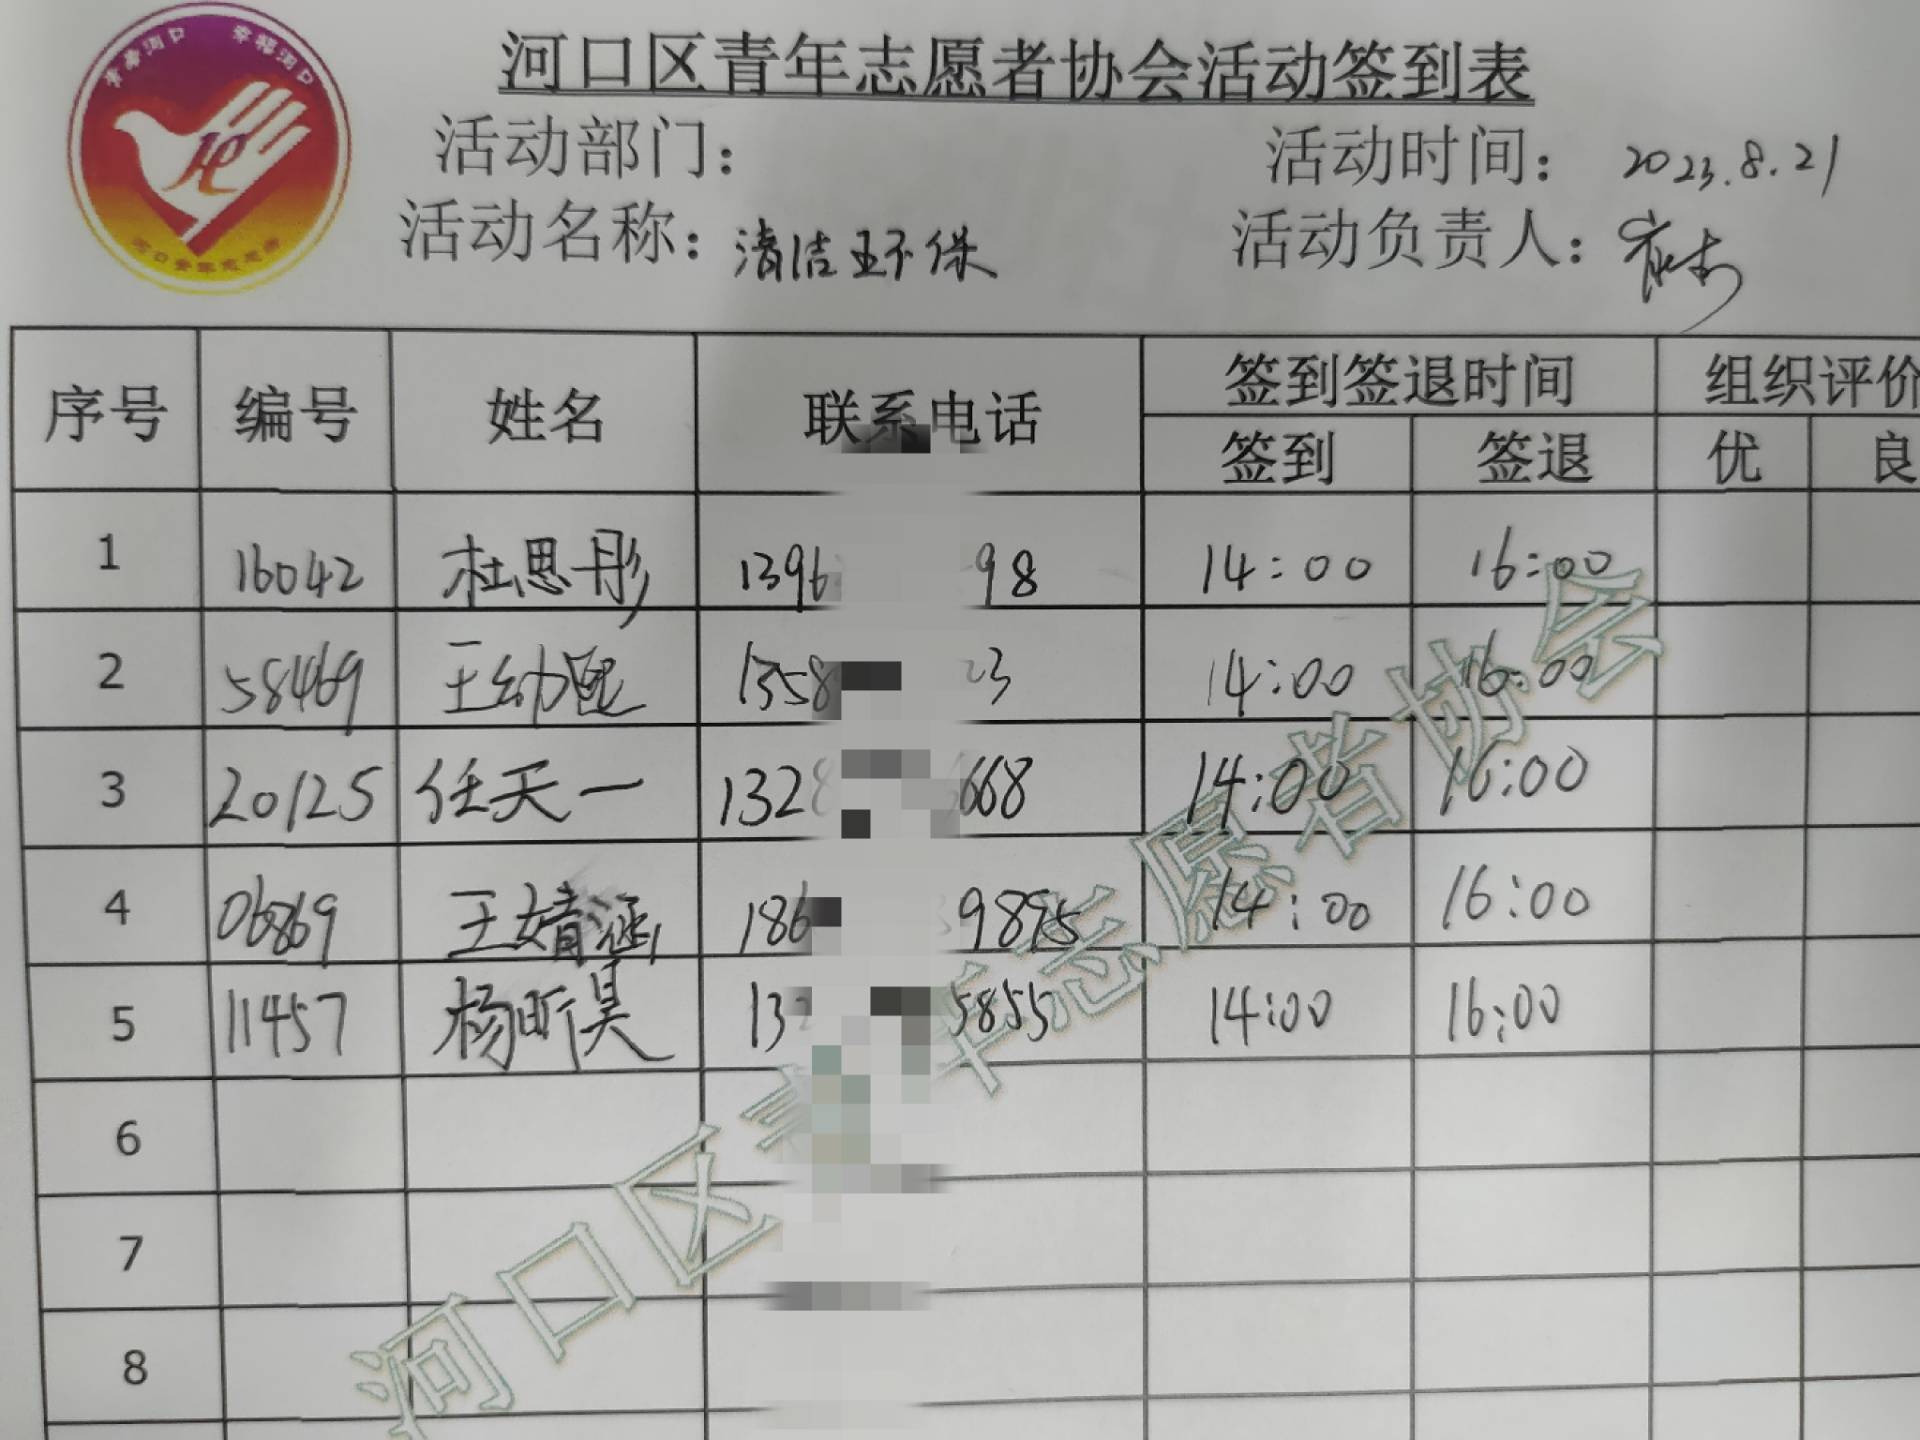 青春河口 幸福河口
河口区青年志愿者协会活动签到表
活动部门： 活动时间： 2023.8.21
活动名称： 清洁环保 活动负责人：
序号 编号 姓名 联系电话 签到签退时间 组织评价
签到 签退 优 良
1 16042 杜思彤 1396 98 14:00 16:00
2 58469 王幼 1358 23 14:00 16:00
3 20125 任天一 1328 668 14:00 16:00
4 06869 王婧涵 186 9875 14:00 16:00
5 11457 杨昕昊 132 5855 14:00 16:00
6
7
8
河口区青年志愿者协会